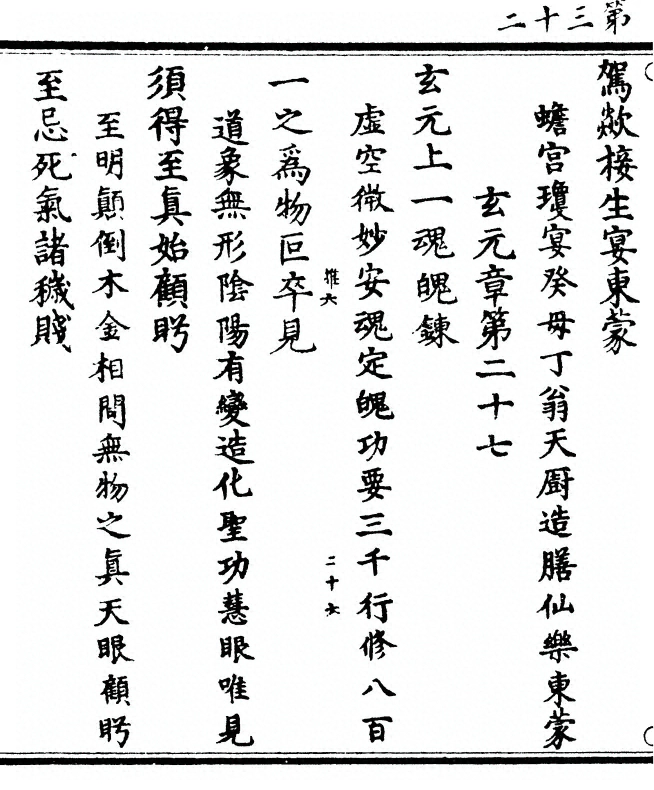 第三十二
駕欻接生宴東蒙
蟾宮瓊宴癸母丁翁天厨造膳仙樂東蒙
玄元章第二十七
玄元上一魂魄鍊
虛空微妙安魂定魄功要三千行修八百
推六
二十六
一之爲物叵卒見
道象無形陰陽有變造化聖功慧眼唯見
須得至眞始顧眄
至明顚倒木金相間無物之眞天眼顧眄
至忌死氣諸穢賤